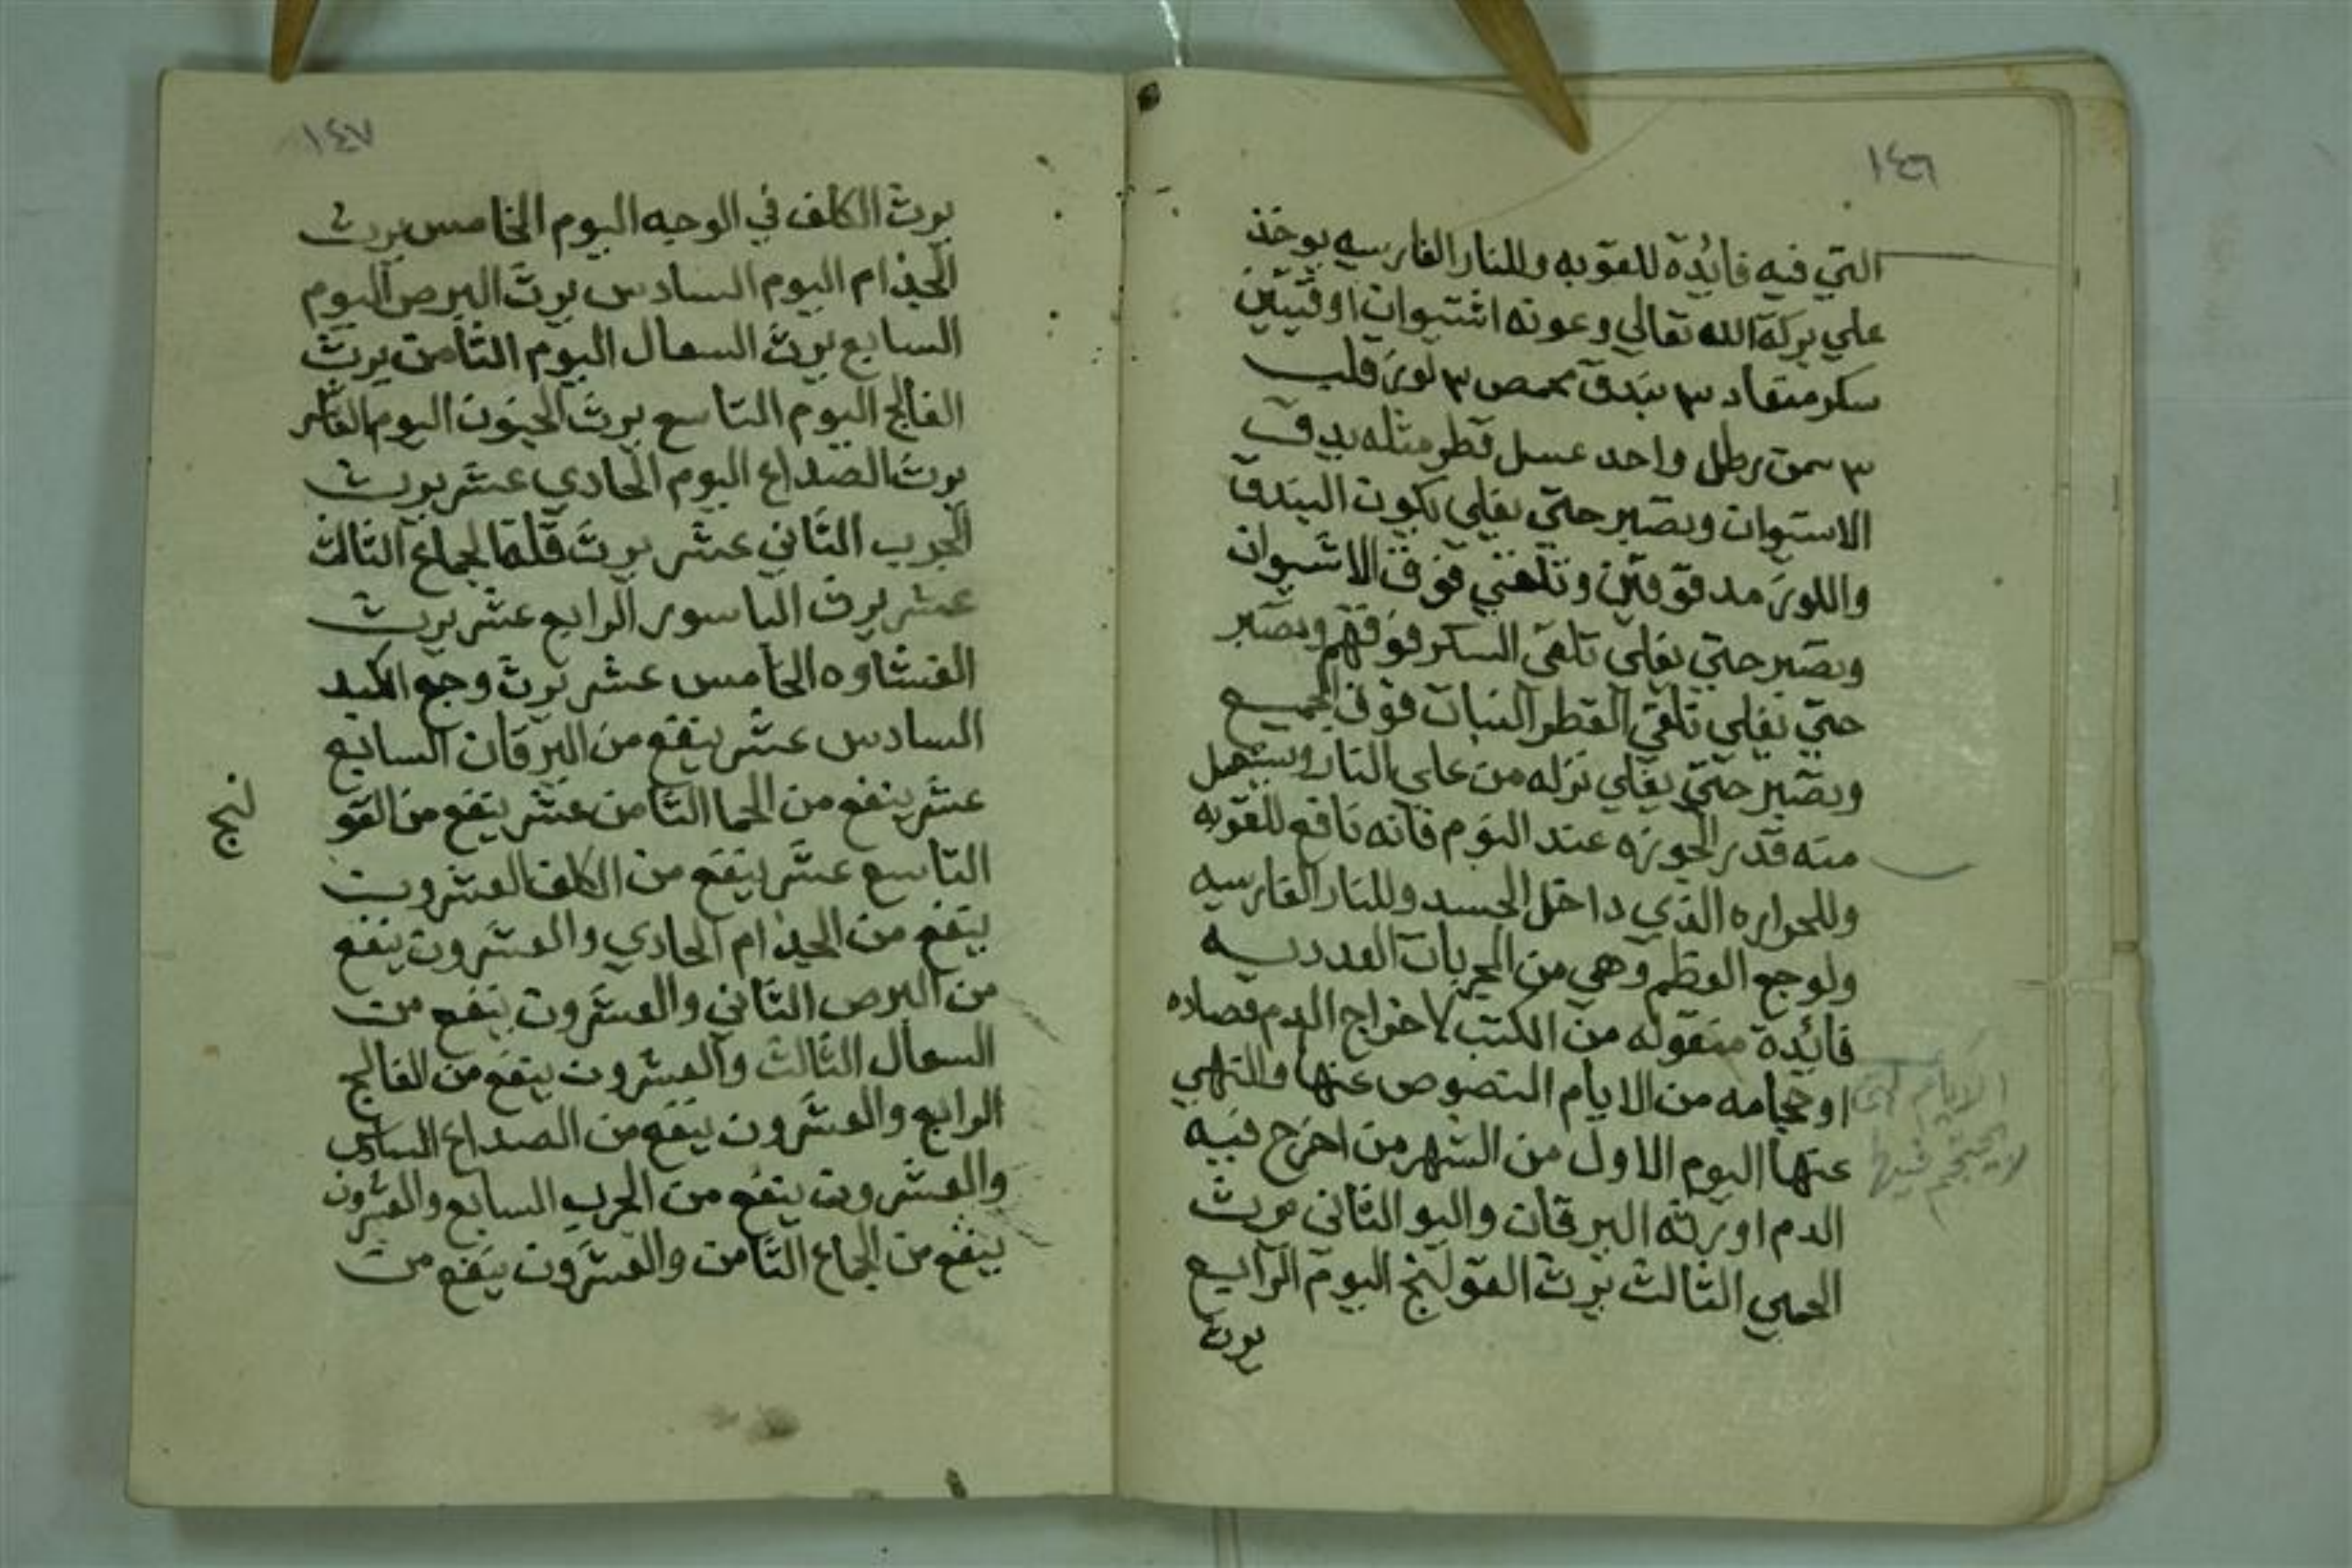 ١٤٦
التي فيه فائدة للقوبه وللنار الفارسيه يوخذ
علي بركة الله تعالي وعونه اشتيوان اوقيتين
سكر منعاد ٣ بندق محمص ٣ لوز قلب
٣ سمن رطل واحد عسل قطر مثله يدق
الاستيوان ويصير حتي يغلي يكون البندق
واللوز مدقوقين وتلقي فوق الاشيوان
ويصير حتي يغلي تلقي السكر فوقهم ويصير
حتي يغلي تلقي القطر النبات فوق الجميع
ويصير حتي يغلي نزله من علي النار ويستعمل
منه قدر الجوزه عند النوم فانه نافع للقوبه
وللحراره الذي داخل الجسد وللنار الفارسيه
ولوجع العظم وهي من المجربات
فائدة منقوله من الكتب لاخراج الدم فصاده
او حجامه من الايام النصوص عنها والنهي
عنها اليوم الاول من الشهر من اخرج فيه
الدم اورثه اليرقان واليو الثاني يرث
الحمي الثالث يرث القولنج اليوم الرابع
يورث
الايام التي
لا يحتجم فيها
١٤٧
يرث الكلف في الوجه اليوم الخامس يرث
الجذام اليوم السادس يرث البرص اليوم
السابع يرث السعال اليوم الثامن يرث
الفالج اليوم التاسع يرث الجنون اليوم العاشر
يرث الصداع اليوم الحادي عشر يرث
الجرب الثاني عشر يرث قلة الجماع الثالث
عشر يرث الباسور الرابع عشر يرث
الغشاوه الخامس عشر يرث وجع الكبد
السادس عشر ينفع من اليرقان السابع
عشر ينفع من الحما الثامن عشر ينفع من القو
لنج
التاسع عشر ينفع من الكلف العشرون
ينفع من الجذام الحادي والعشرون ينفع
من البرص الثاني والعشرون ينفع من
السعال الثالث والعشرون ينفع من الفالج
الرابع والعشرون ينفع من الصداع السادس
والعشرون ينفع من الجرب السابع والعشرون
ينفع من الجماع الثامن والعشرون ينفع من